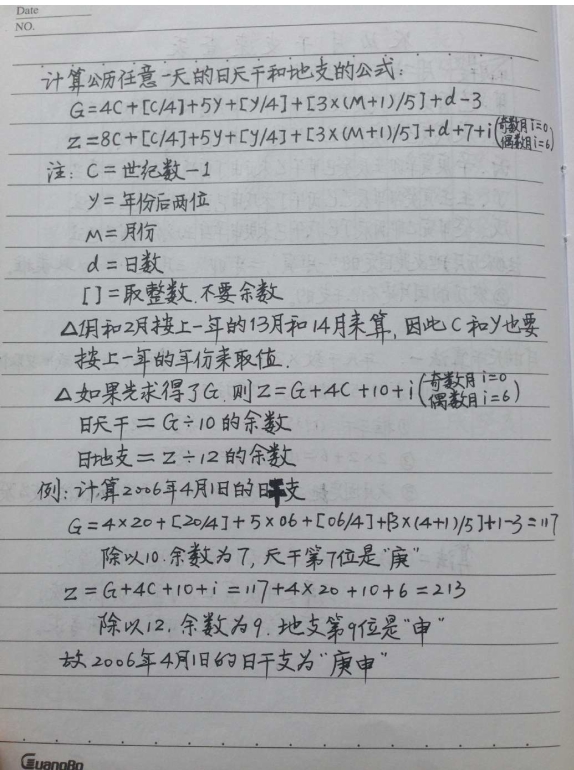 Date
NO.
计算公历任意一天的日天干和地支的公式:
G=4C+[C/4]+5y+[y/4]+[3×(M+1)/5]+d-3
Z=8C+[C/4]+5y+[y/4]+[3×(M+1)/5]+d+7+i(奇数月i=0 偶数月i=6)
注: C=世纪数-1
y=年份后两位
M=月份
d=日数
[ ]=取整数,不要余数
△1月和2月按上一年的13月和14月来算,因此C和y也要
按上一年的年份来取值.
△如果先求得了G,则Z=G+4C+10+i(奇数月i=0 偶数月i=6)
日天干=G÷10的余数
日地支=Z÷12的余数
例:计算2006年4月1日的日干支
G=4×20+[20/4]+5×06+[06/4]+[3×(4+1)/5]+1-3=117
除以10.余数为7,天干第7位是"庚"
Z=G+4C+10+i=117+4×20+10+6=213
除以12,余数为9.地支第9位是"申"
故2006年4月1日的日干支为"庚申"
GuangBo